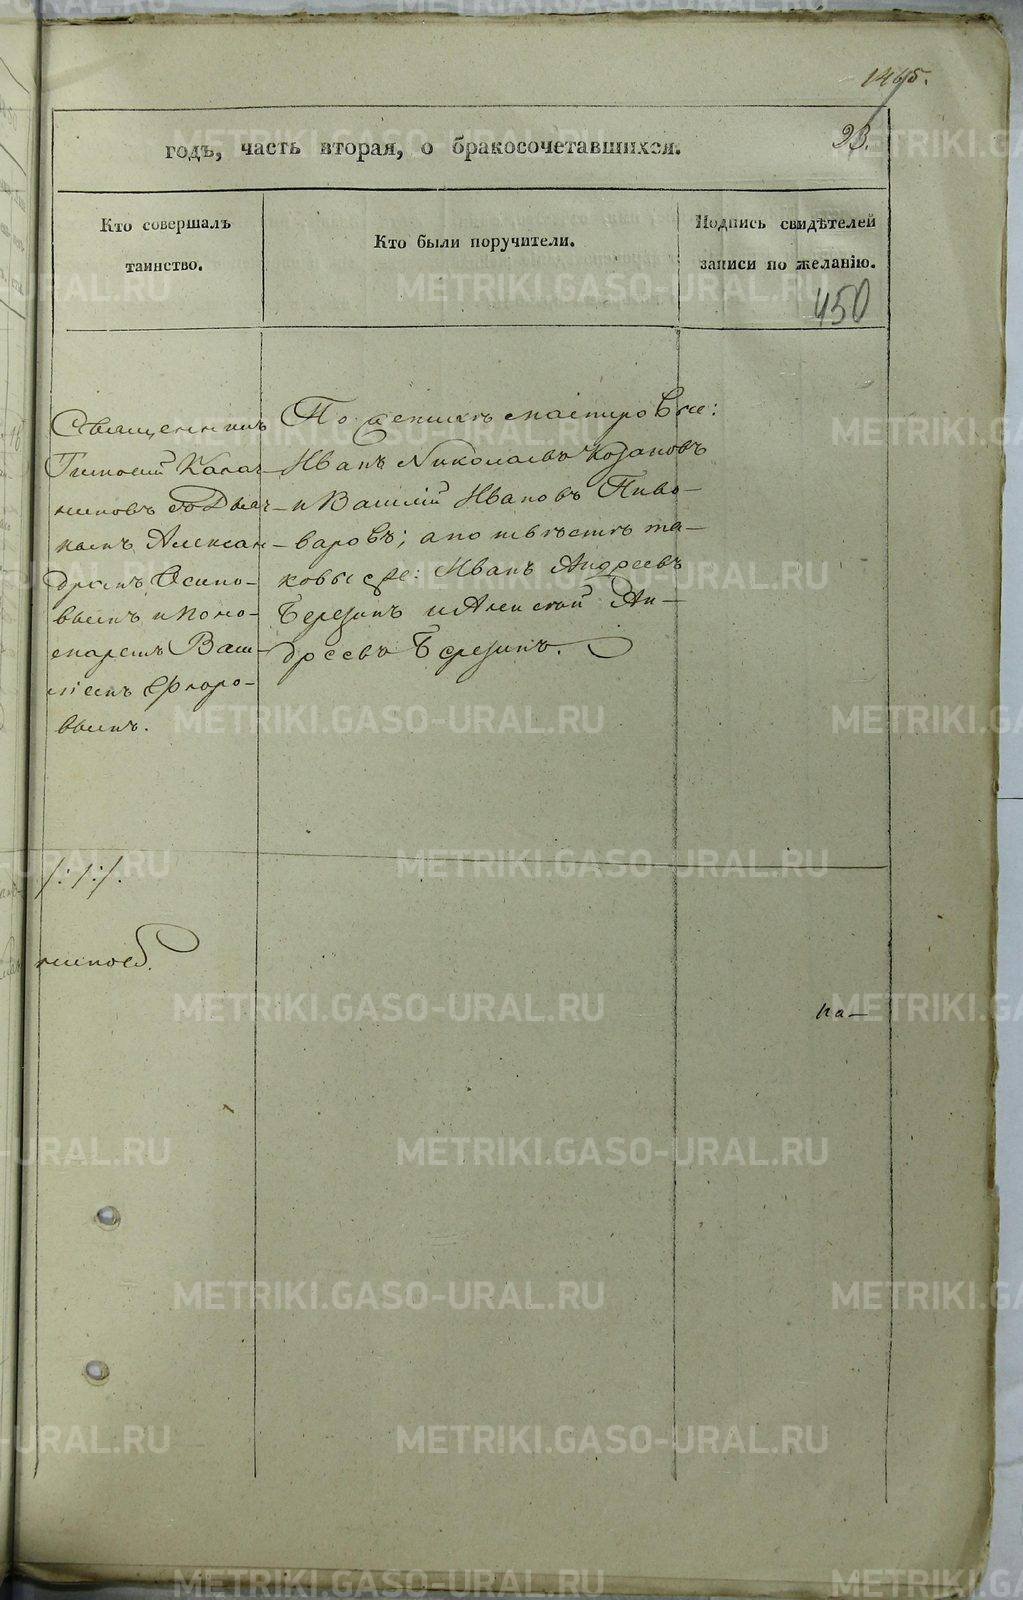 1465.
23.
годъ, часть вторая, о бракосочетавшихся.
Кто совершалъ
таинство.
Кто были поручители.
Подпись свидѣтелей
записи по желанію.
450
Священникъ
Тимофей Калач-
никовъ съ Дьяч-
комъ Алексан-
дромъ Осипо-
вымъ и поно-
маремъ Васи-
ліемъ Флоро-
вымъ.
По женихѣ мастеровые:
Иванъ Николаевъ Козановъ
и Василій Ивановъ Пиво-
варовъ; а по невѣстѣ та-
ковые же: Иванъ Андреевъ
Березинъ и Алексѣй Ан-
дреевъ Березинъ.
/:/:/.
никовъ.
на-
METRIKI.GASO-URAL.RU